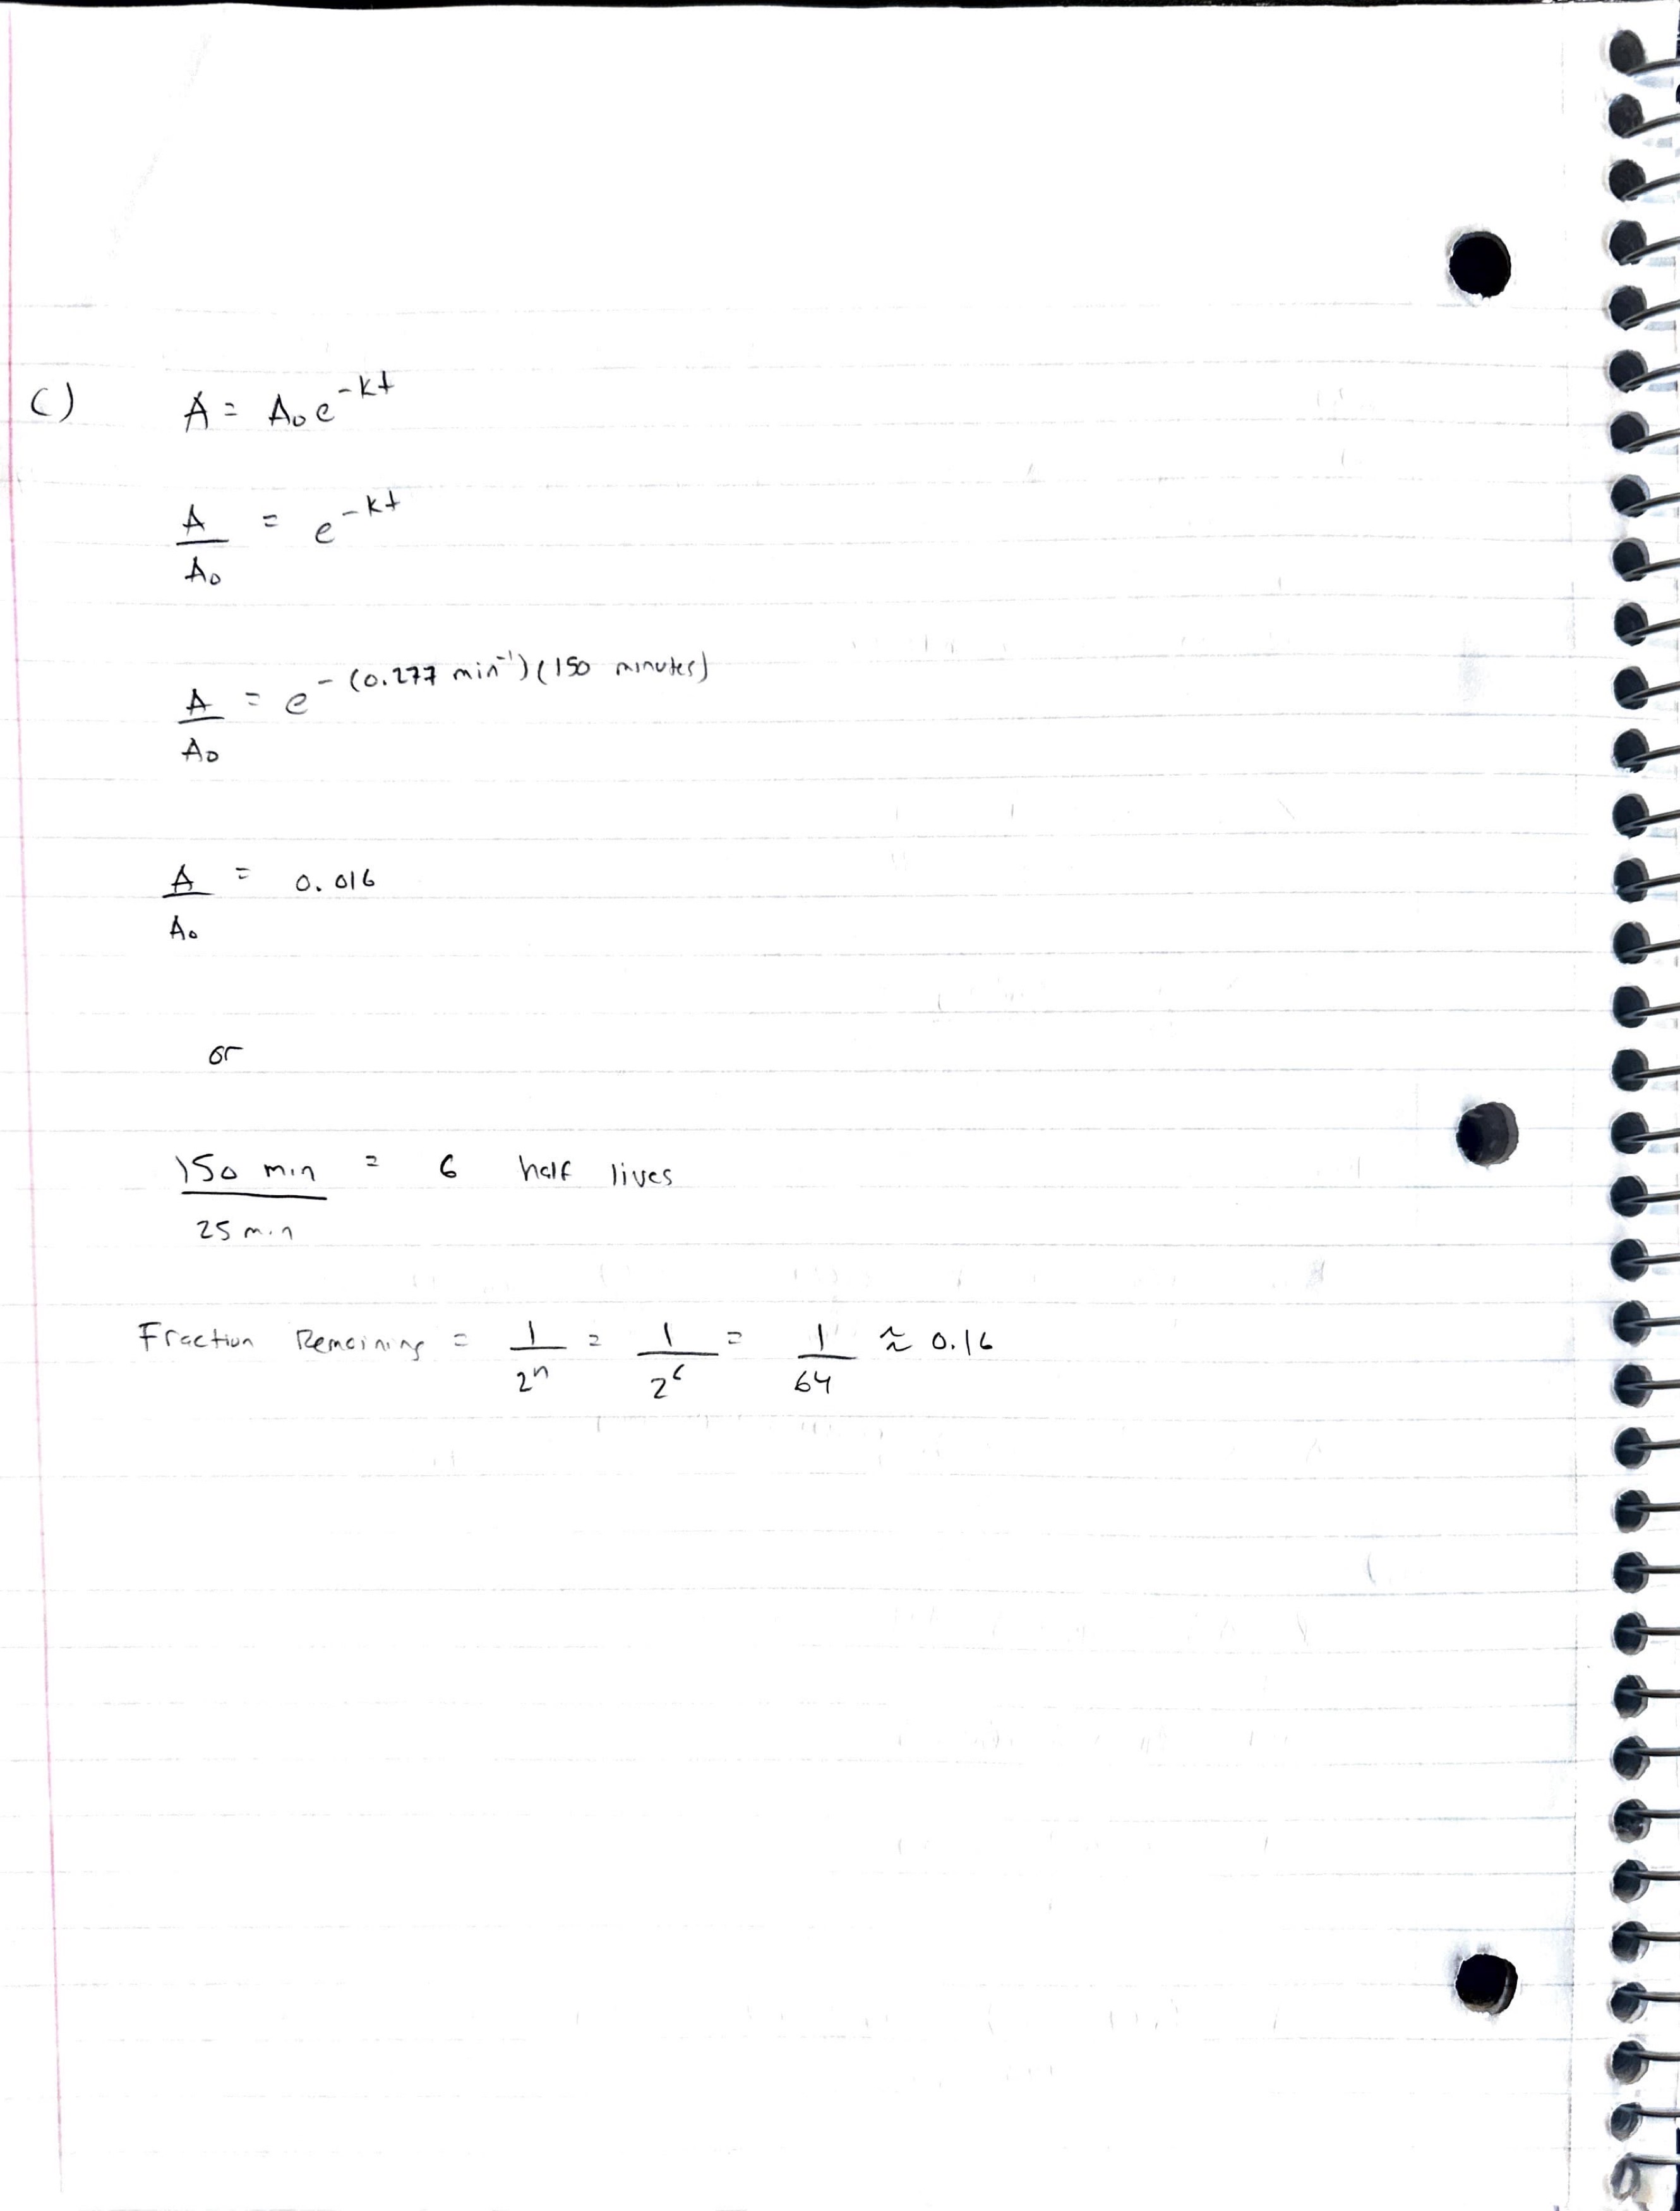 c) A = A₀e^(-kt)
A/A₀ = e^(-kt)
A/A₀ = e^(-(0.277 min⁻¹)(150 minutes))
A/A₀ = 0.016
or
150 min / 25 min = 6 half lives
Fraction Remaining = 1/2ⁿ = 1/2⁶ = 1/64 ≈ 0.16